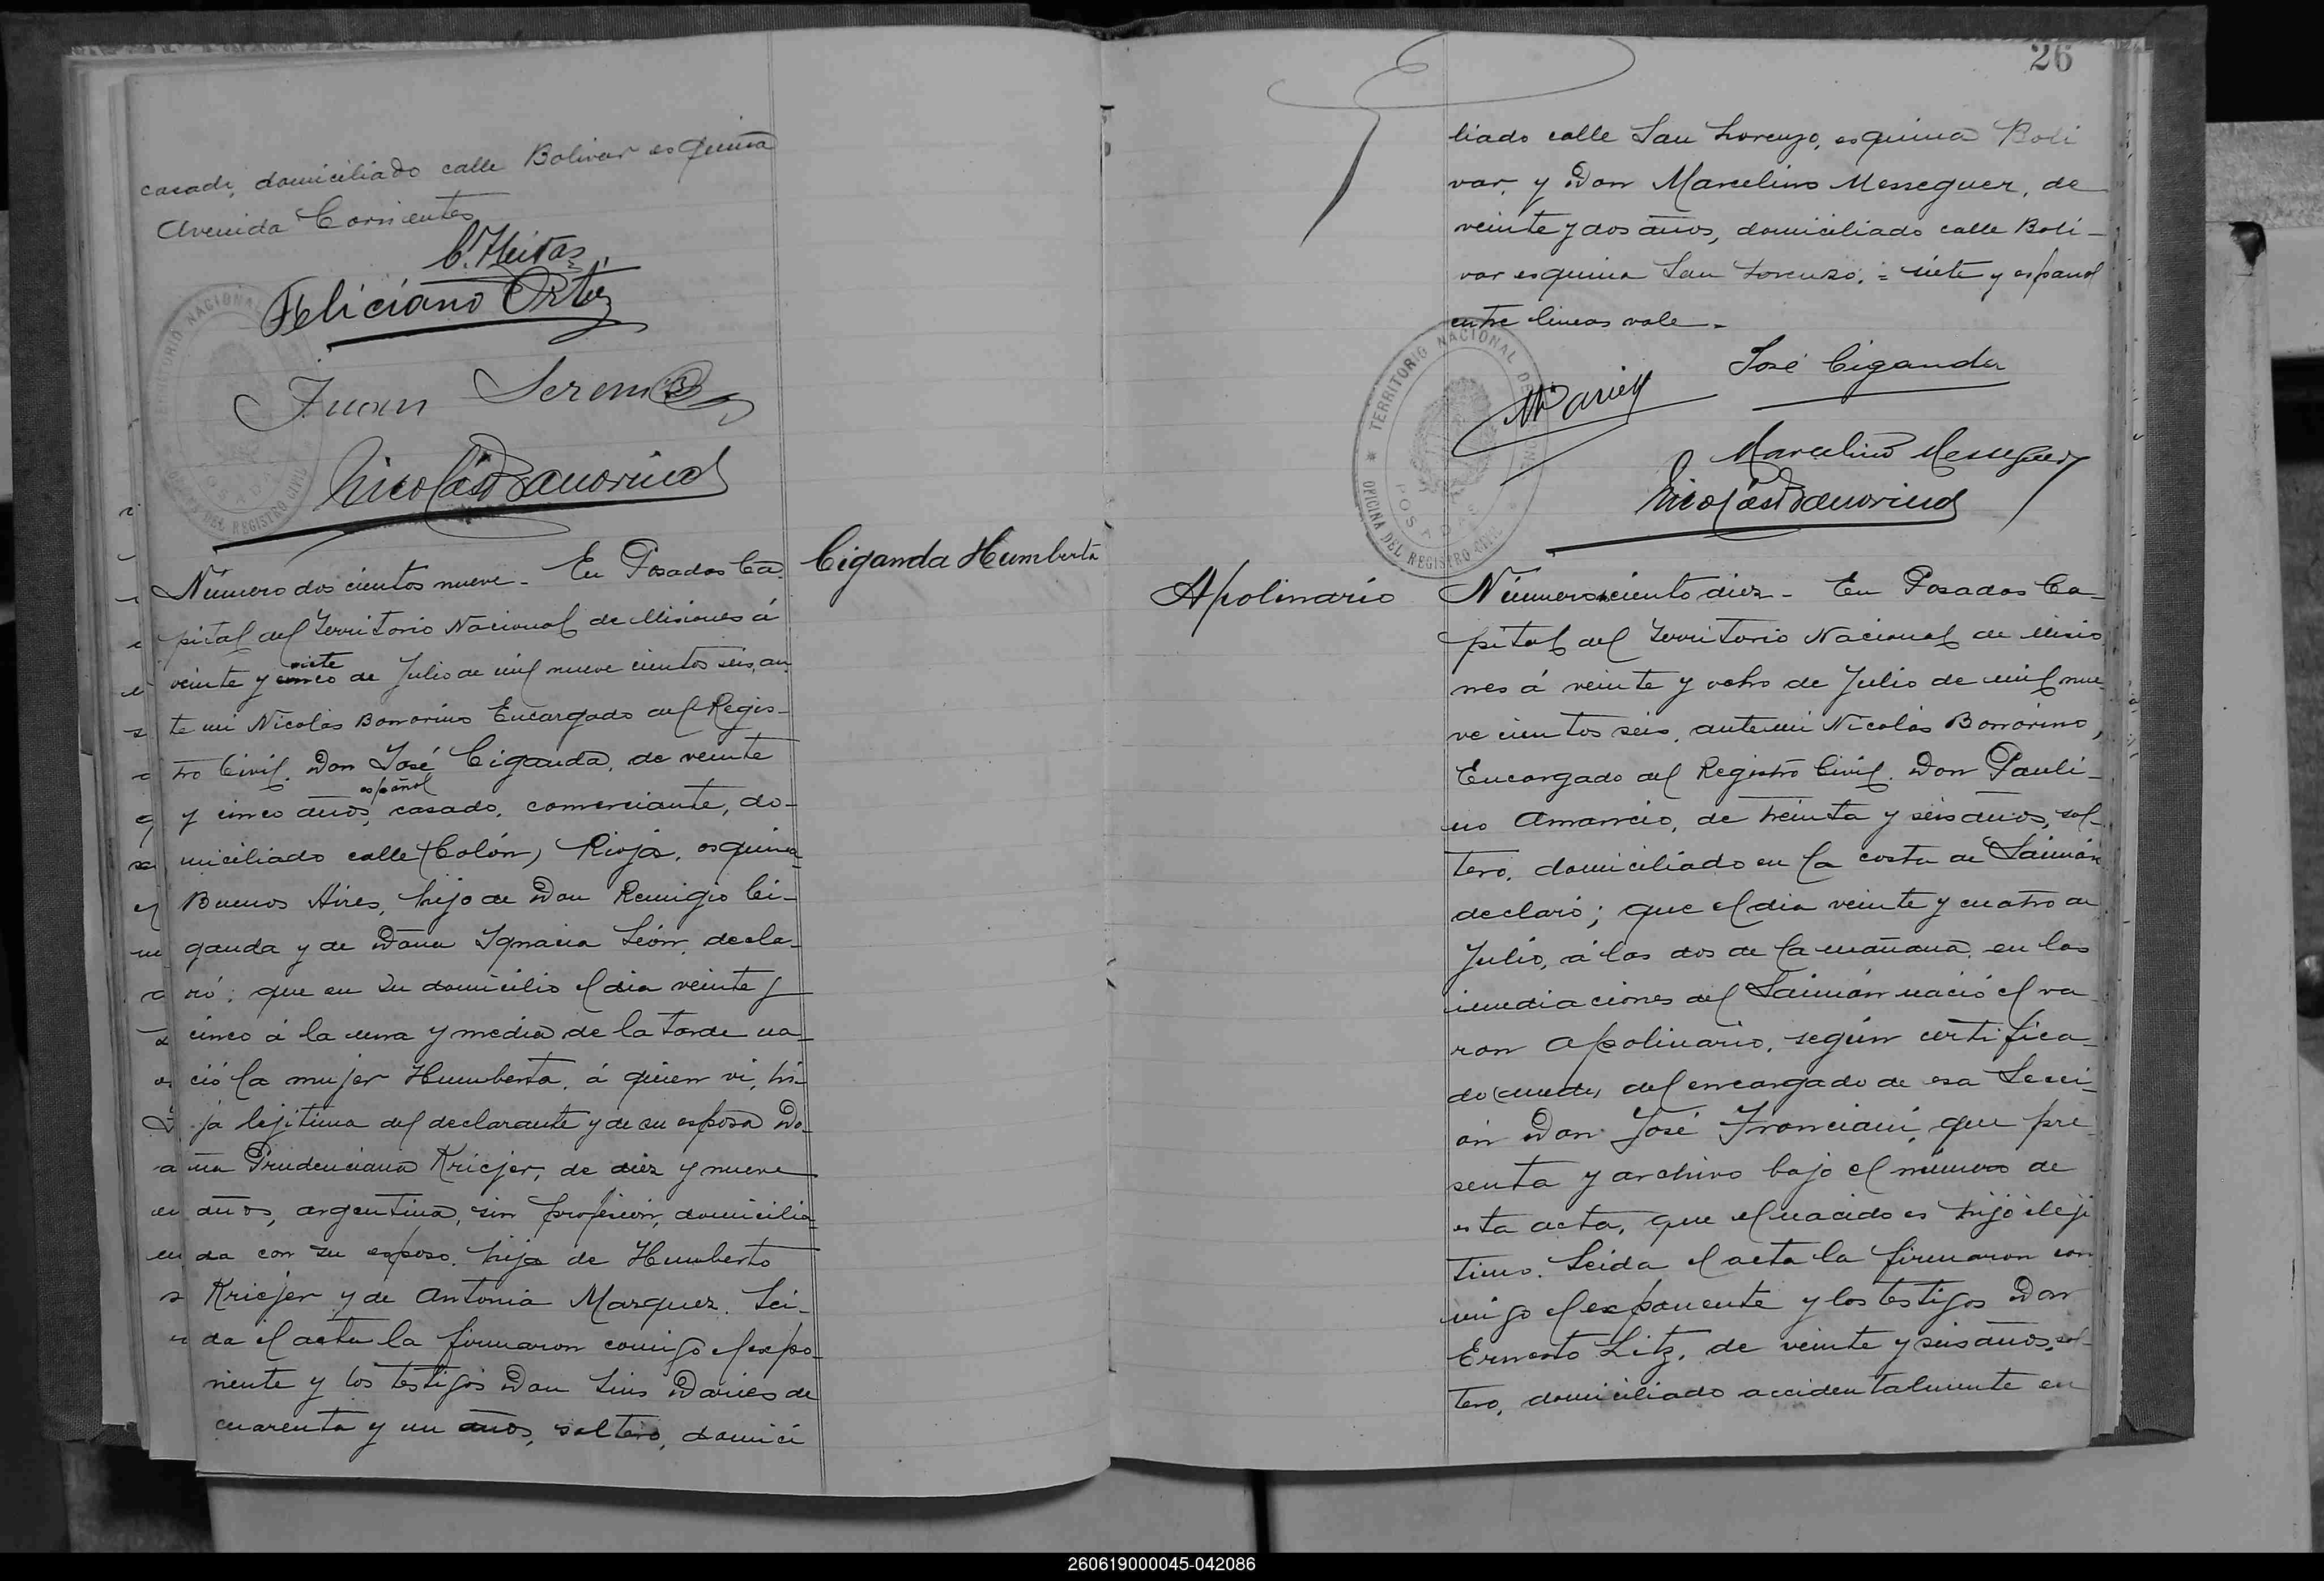 casado, domiciliado calle Bolivar esquina
Avenida Corrientes
Feliciano Ortiz
Juan
Nicolás Bonorino
TERRITORIO NACIONAL
POSADAS
OFICINA DEL REGISTRO CIVIL
Ciganda Humberta
Número dos cientos nueve - En Posadas Ca-
pital del Territorio Nacional de Misiones á
siete
veinte y cinco de Julio de mil nueve cientos seis, an-
te mi Nicolás Bonorino Encargado del Regis-
tro Civil. Don José Ciganda, de veinte
español
y cinco años, casado, comerciante, do-
miciliado calle (Colón) Rioja, esquina
Buenos Aires, hijo de Don Remigio Ci-
ganda y de Doña Ignacia León, decla-
ró: que en su domicilio el dia veinte y
cinco á la una y media de la tarde na-
ció la mujer Humberta, á quien vi, hi-
ja lejitima del declarante y de su esposa Do-
ña Prudenciana Kriejer, de diez y nueve
años, argentina, sin profesion, domicilia-
da con su esposo, hija de Humberto
Kriejer y de Antonia Marquez. Lei-
da el acta la firmaron comigo el expo-
nente y los testigos Don Luis Daries de
cuarenta y un años, soltero, domici
26
liado calle San Lorenzo, esquina Boli
var, y Don Marcelino Messeguer, de
veinte y dos años, domiciliado calle Boli-
var esquina San Lorenzo. = siete y español
entre lineas vale -
José Ciganda
Marcelino Messeguer
Nicolás Bonorino
TERRITORIO NACIONAL DE
POSADAS
OFICINA DEL REGISTRO CIVIL
Apolinario
Número ciento diez - En Posadas Ca-
pital del Territorio Nacional de Misio
nes á veinte y ocho de Julio de mil nue-
ve cientos seis, ante mi Nicolás Bonorino,
Encargado del Registro Civil. Don Pauli-
no Amancio, de treinta y seis años, sol-
tero, domiciliado en la costa de Saimán
declaró; que el dia veinte y cuatro de
Julio, á las dos de la mañana, en las
imediaciones del Saimán nació el va-
ron Apolinario, según certifica-
do del encargado de esa Secci-
ón Don José Franciani, que pre-
senta y archivo bajo el número de
esta acta, que el nacido es hijo ileji
timo. Leida el acta la firmaron con
migo el exponente y los testigos Don
Ernesto Litz, de veinte y seis años, sol-
tero, domiciliado accidentalmente en
260619000045-042086